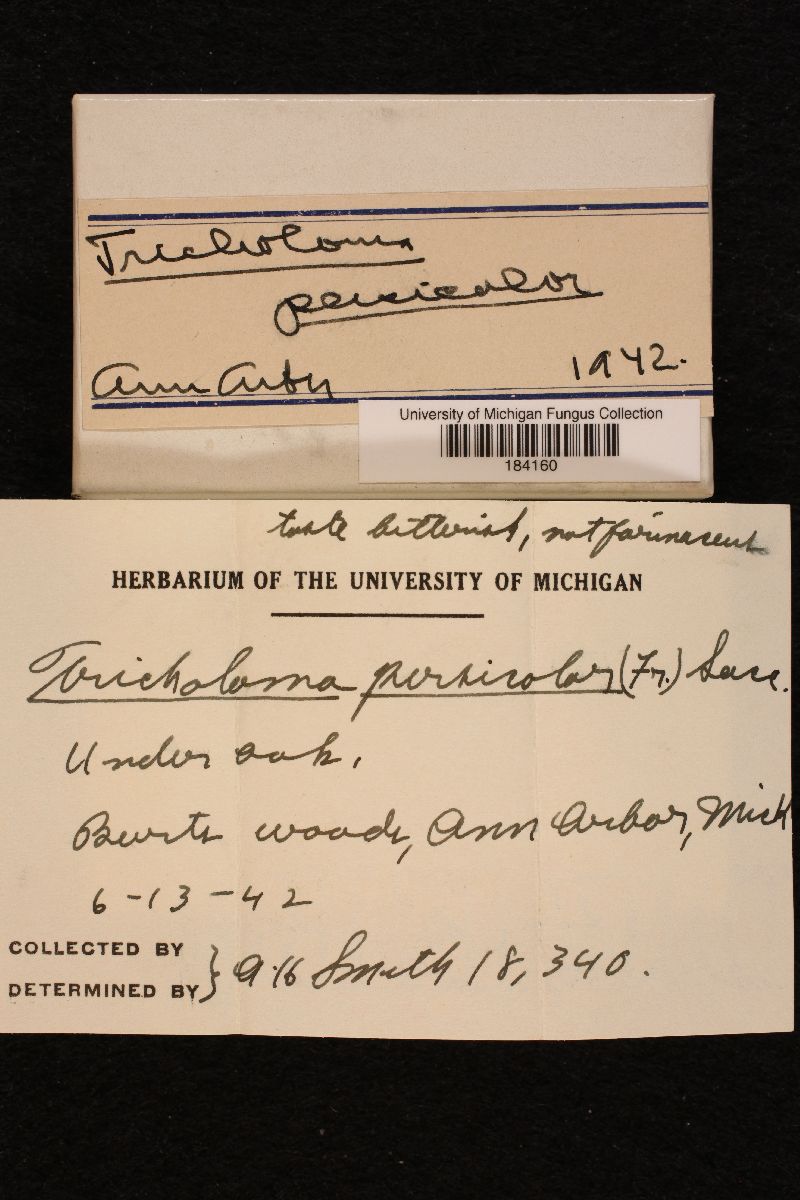 Tricholoma
persicolor
Ann Arbor 1942.
University of Michigan Fungus Collection
184160
taste bitterish, not farinaceous
HERBARIUM OF THE UNIVERSITY OF MICHIGAN
Tricholoma persicolor (Fr.) Sacc.
Under oak.
woods, Ann Arbor, Mich
6-13-42
COLLECTED BY
DETERMINED BY } A.H Smith 18,340.